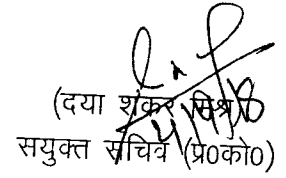 (दया शंकर मिश्र)
सयुक्त सचिव (प्र०को०)